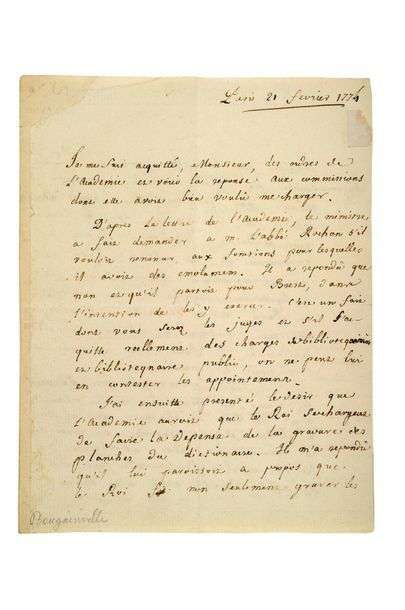 Paris 21 fevrier 1774
Je me suis acquitté, Monsieur, des ordres de
L'Academie et voici la reponse aux commissions
dont elle avoit bien voulu me charger.
D'après la lettre de l'academie, le ministre
a fait demander a m. l'abbé Rochon s'il
vouloit renoncer aux fonctions pour lesquelles
il avoit des emolumens. Il a repondu que
non et qu'il partoit pour Brest, dans
l'intention de les y exercer. C'est un fait
dont vous serez les juges et s'il s'ac
quitte reellement des charges de bibliotecaire
et bibliotequaire public, on ne peut lui
en contester les appointemens.
J'ai ensuitte presenté le desir que
L'Academie auroit que le Roi se chargeat
de faire la depense de la gravure des
planches du dictionaire. Il m'a repondu
qu'il lui paroissoit a propos que
le Roi fit non seulement graver les
Bougainville